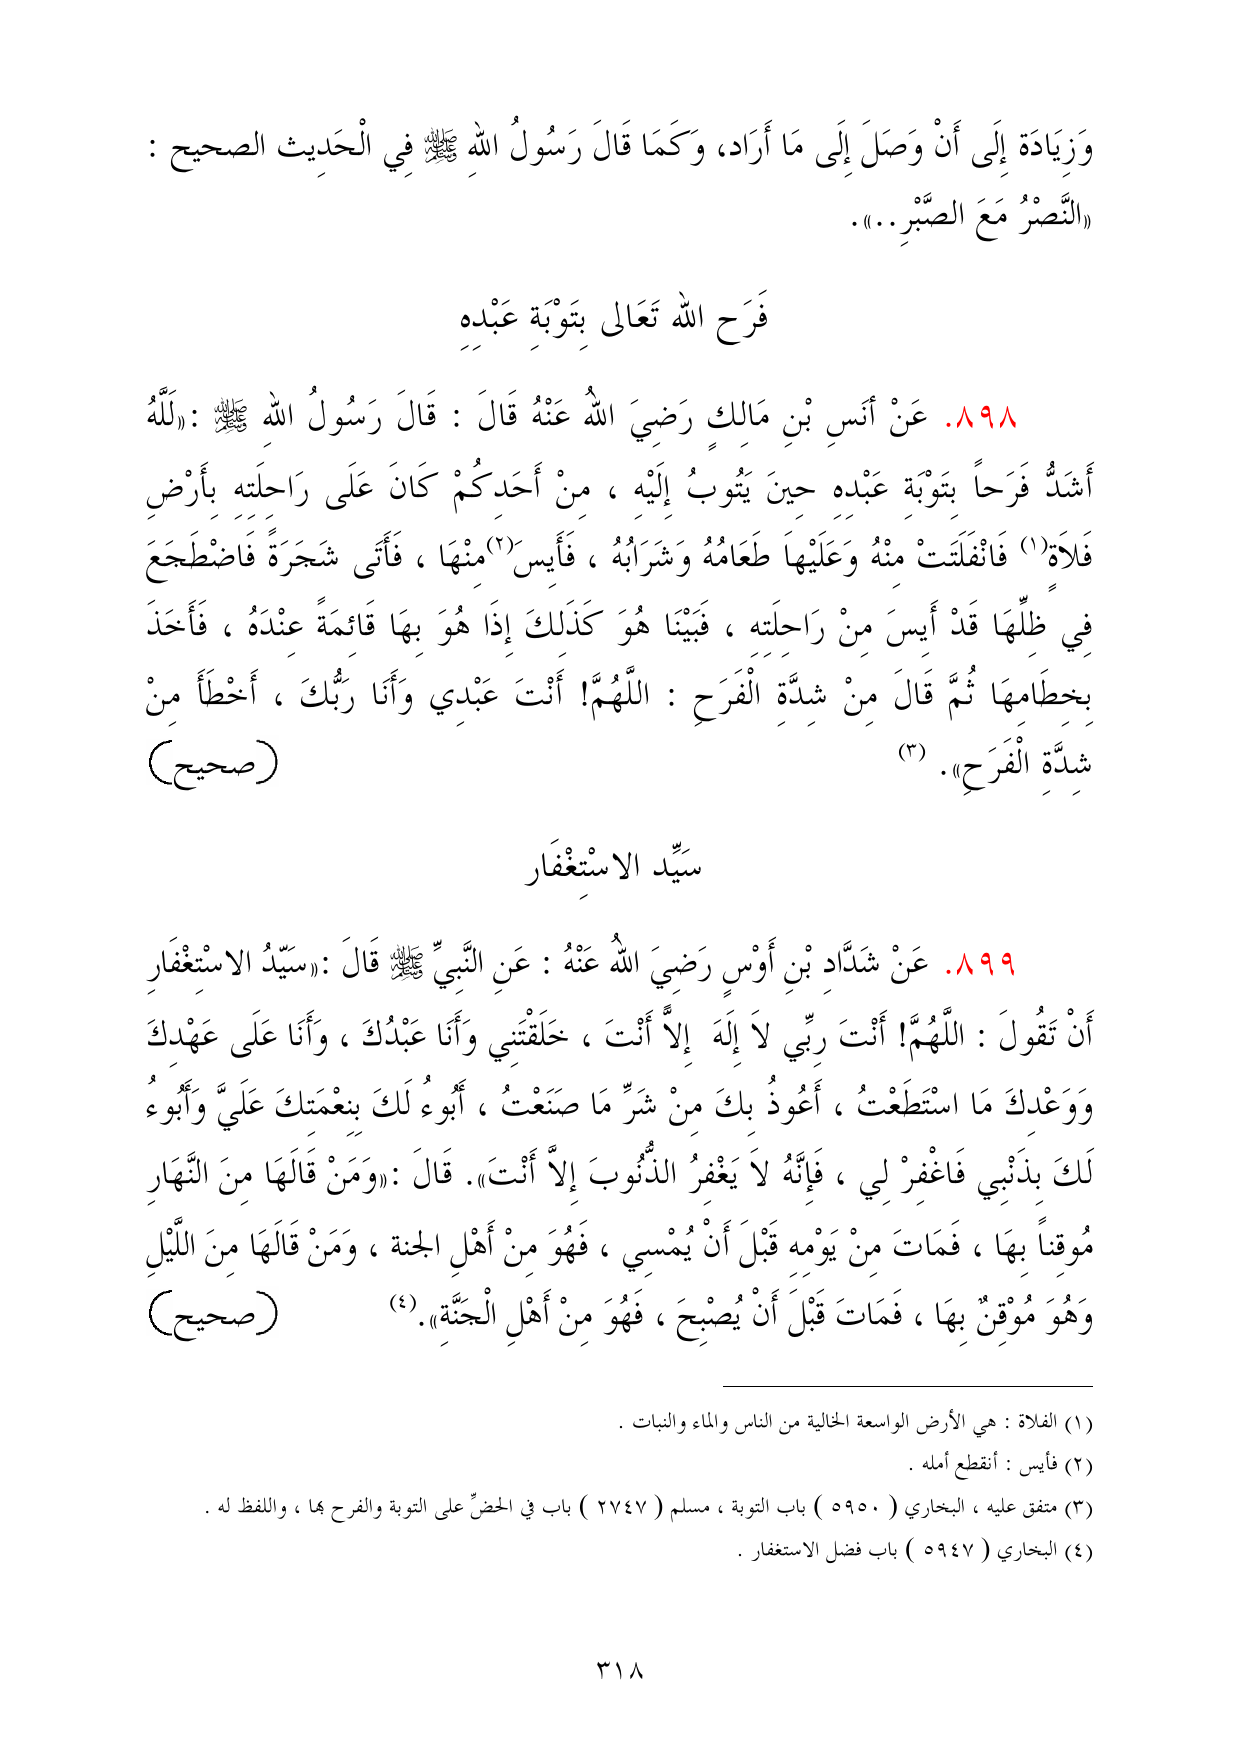 وَزِيَادَة إِلَى أَنْ وَصَلَ إِلَى مَا أَرَاد، وَكَمَا قَالَ رَسُولُ اللهِ ﷺ فِي الْحَدِيث الصحيح :
«النَّصْرُ مَعَ الصَّبْرِ..».
فَرَح الله تَعَالى بِتَوْبَةِ عَبْدِهِ
٨٩٨. عَنْ أَنَسِ بْنِ مَالِكٍ رَضِيَ اللهُ عَنْهُ قَالَ : قَالَ رَسُولُ اللهِ ﷺ :«لَلَّهُ
أَشَدُّ فَرَحاً بِتَوْبَةِ عَبْدِهِ حِينَ يَتُوبُ إِلَيْهِ ، مِنْ أَحَدِكُمْ كَانَ عَلَى رَاحِلَتِهِ بِأَرْضِ
فَلاَةٍ(١) فَانْفَلَتَتْ مِنْهُ وَعَلَيْهاَ طَعَامُهُ وَشَرَابُهُ ، فَأَيِسَ(٢)مِنْهَا ، فَأَتَى شَجَرَةً فَاضْطَجَعَ
فِي ظِلِّهَا قَدْ أَيِسَ مِنْ رَاحِلَتِهِ ، فَبَيْنَا هُوَ كَذَلِكَ إِذَا هُوَ بِهَا قَائِمَةً عِنْدَهُ ، فَأَخَذَ
بِخِطَامِهَا ثُمَّ قَالَ مِنْ شِدَّةِ الْفَرَحِ : اللَّهُمَّ! أَنْتَ عَبْدِي وَأَنَا رَبُّكَ ، أَخْطَأَ مِنْ
شِدَّةِ الْفَرَحِ». (٣) (صحيح)
سَيِّد الاسْتِغْفَار
٨٩٩. عَنْ شَدَّادِ بْنِ أَوْسٍ رَضِيَ اللهُ عَنْهُ : عَنِ النَّبِيِّ ﷺ قَالَ :«سَيِّدُ الاسْتِغْفَارِ
أَنْ تَقُولَ : اللَّهُمَّ! أَنْتَ رَبِّي لاَ إِلَهَ إِلاَّ أَنْتَ ، خَلَقْتَنِي وَأَنَا عَبْدُكَ ، وَأَنَا عَلَى عَهْدِكَ
وَوَعْدِكَ مَا اسْتَطَعْتُ ، أَعُوذُ بِكَ مِنْ شَرِّ مَا صَنَعْتُ ، أَبُوءُ لَكَ بِنِعْمَتِكَ عَلَيَّ وَأَبُوءُ
لَكَ بِذَنْبِي فَاغْفِرْ لِي ، فَإِنَّهُ لاَ يَغْفِرُ الذُّنُوبَ إِلاَّ أَنْتَ». قَالَ :«وَمَنْ قَالَهَا مِنَ النَّهَارِ
مُوقِناً بِهَا ، فَمَاتَ مِنْ يَوْمِهِ قَبْلَ أَنْ يُمْسِي ، فَهُوَ مِنْ أَهْلِ الجنة ، وَمَنْ قَالَهَا مِنَ اللَّيْلِ
وَهُوَ مُوْقِنٌ بِهَا ، فَمَاتَ قَبْلَ أَنْ يُصْبِحَ ، فَهُوَ مِنْ أَهْلِ الْجَنَّةِ».(٤) (صحيح)
(١) الفلاة : هي الأرض الواسعة الخالية من الناس والماء والنبات .
(٢) فأيس : أنقطع أمله .
(٣) متفق عليه ، البخاري ( ٥٩٥٠ ) باب التوبة ، مسلم ( ٢٧٤٧ ) باب في الحضِّ على التوبة والفرح بها ، واللفظ له .
(٤) البخاري ( ٥٩٤٧ ) باب فضل الاستغفار .
٣١٨